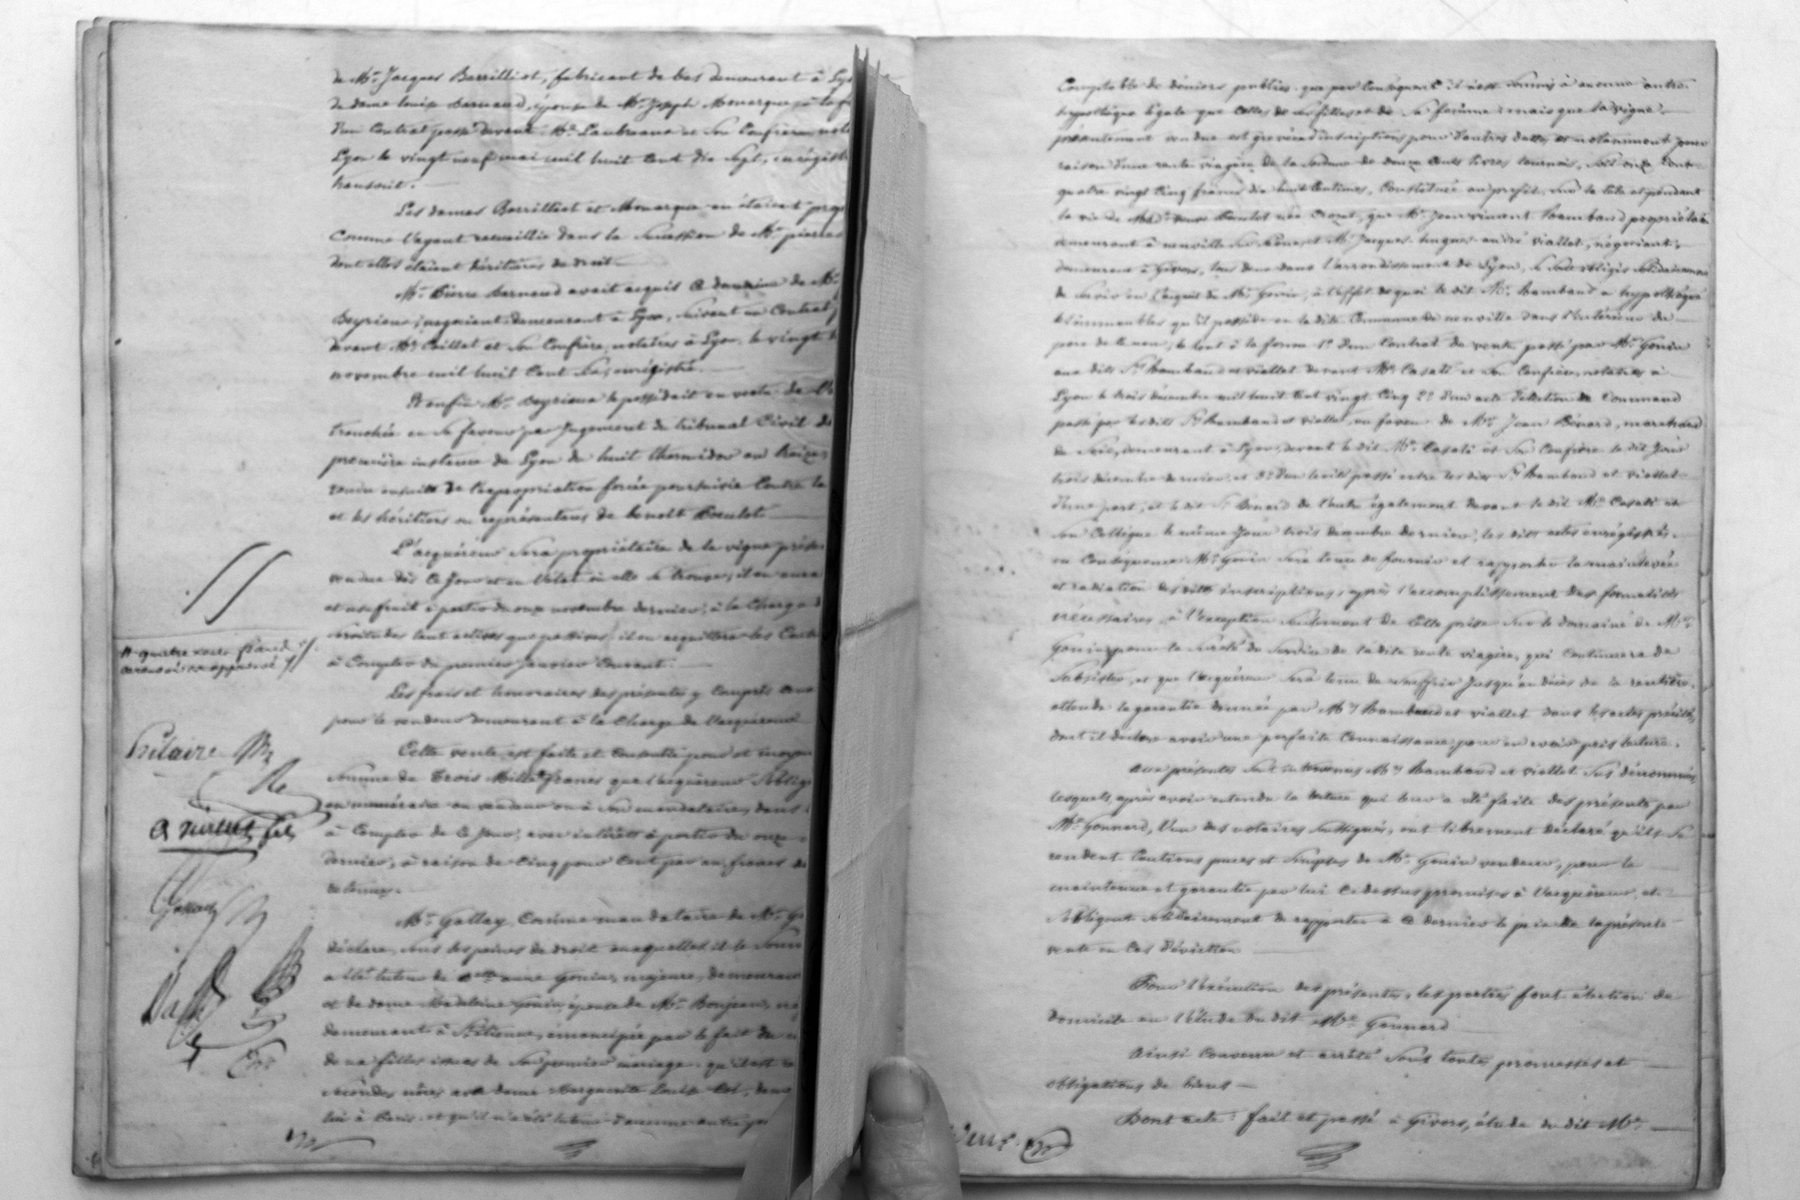 de Mr. Jacques Barrilliot, fabricant de bas demeurant à Lyo
de dame Louise Barnaud, épouse de Mr. Joseph Monarque, à la f
d'un Contrat passé devant Me. et Son Confrère, not
Lyon le vingt neuf mai mil huit Cent dix Sept, enrégistré
transcrit.
Les dames Barrilliot et Monarque en étaient prop
Comme l'ayant recueillie dans la Succession de Mr. pierre
dont elles étaient héritières de droit.
Mr. Pierre Barnaud avait acquis Ce domaine de Mr.
Beyrieux, négociant, demeurant à Lyon, Suivant un Contrat
devant Me. Caillat et Son Confrère, notaires à Lyon, le vingt
novembre mil huit Cent Six, enrégistré.
Et enfin Mr. Beyrieux le possédait en vertu de
tranchée en Sa faveur par Jugement du tribunal Civil de
première instance de Lyon du huit thermidor an treize,
rendu ensuite de l'expropriation forcée poursuivie Contre la
et les héritiers ou représentans de benoit
L'acquéreur Sera propriétaire de la vigne prése
vendue dès Ce Jour et en l'état où elle Se trouve; il en aura
et usufruit à partir du onze novembre dernier, à la Charge d
servitudes tant actives que passives; il en acquittera les Cont
à Compter du premier Janvier Courant.
Les frais et honoraires des présentes y Compris
pour le vendeur demeurant à la Charge de l'acquéreur
Cette vente est faite et Consentie pour et moyen
Somme de Trois Mille francs que l'acquéreur S'oblige
en numéraire au vendeur ou à Son mandataire, dans
à Compter de Ce Jour, avec intérêts à partir du onze
dernier, à raison de Cinq pour Cent par an, francs de
retenue.
Mr. Gallay, Comme mandataire de Mr. G
déclare, Sous les peines de droit auxquelles il le Soum
a été tuteur de Delle. anne Gonin, majeure, demeurant
et de dame Madelaine Gonin, épouse de Mr. Bonjean,
demeurant à St. Etienne, émancipée par le fait du
deux filles issues de Son premier mariage, qu'il est
Secondes nôces avec dame Marguerite Louise
lui à Paris, et qu'il n'a été tuteur d'aucune autre per
quatre
approuvé
Vital fils
Comptable de déniers publics, que par Conséquent il n'est Soumis à aucune autre
hypothèque légale que Celles de Ses filles et de Sa femme; mais que la vigne
présentement vendue est grevée d'inscriptions pour d'autres dettes, et notamment pour
raison d'une rente viagère de la Somme de douze Cents livres tournois, Soit onze Cent
quatre vingt Cinq francs dix huit Centimes, Constituée au profit, Sur la tête et pendant
la vie de Made. veuve née Crozet, que Mr. Jean vincent Rambaud propriétaire
demeurant à neuville Sur Saône, et Mr. Jacques hugues andré viallet, négociant,
demeurant à Givors, tous deux dans l'arrondissement de Lyon, Se Sont obligés Solidairement
de Servir en l'acquit de Mr. Gonin, à l'effet de quoi le dit Mr. Rambaud a hypothéqué
les immeubles qu'il possède en la dite Commune de neuville dans l'intérieur du
parc de le tout à la forme 1°. d'un Contrat de vente passé par Mr. Gonin
aux dits Srs. Rambaud et viallet devant Me. Casati et Son Confrère, notaires à
Lyon le trois décembre mil huit Cent vingt Cinq 2°. d'un acte d'élection de Command
passé par les dits Srs. Rambaud et viallet, en faveur de Mr. Jean Bénard, marchand
de Soie, demeurant à Lyon, devant le dit Me. Casati et Son Confrère le dit Jour
trois décembre dernier, et 3°. d'un traité passé entre les dits Srs. Rambaud et viallet
d'une part, et le dit Sr. Bénard de l'autre également devant le dit Me. Casati et
Son Collègue le même Jour trois décembre dernier, les dits actes enrégistrés.
en Conséquence Mr. Gonin Sera tenu de fournir et rapporter la mainlevée
et radiation des dites inscriptions, après l'accomplissement des formalités
nécessaires, à l'exception Seulement de Celle prise Sur le domaine de Mr.
Gonin pour la Sûreté du Service de la dite rente viagère, qui Continuera de
Subsister, et que l'acquéreur Sera tenu de Souffrir Jusqu'au décès de la rentière,
attendu la garantie donnée par Mrs. Rambaud et viallet dans les actes précités,
dont il déclare avoir une parfaite Connaissance, pour en avoir pris lecture.
Aux présentes Sont intervenus Mrs. Rambaud et viallet Sus dénommés,
lesquels, après avoir entendu la lecture qui leur a été faite des présentes par
Me. Gonnard, l'un des notaires Soussignés, ont librement déclaré qu'ils Se
rendent Cautions pures et Simples de Mr. Gonin vendeur, pour la
maintenue et garantie par lui Ci dessus promises à l'acquéreur, et
S'obligent Solidairement de rapporter à Ce dernier le prix de la présente
vente en Cas d'éviction
Pour l'exécution des présentes, les parties font élection de
domicile en l'étude du dit Me. Gonnard
Ainsi Convenu et arrêté Sous toutes promesses et
obligations de biens
Dont acte: fait et passé à Givors, étude du dit Me.